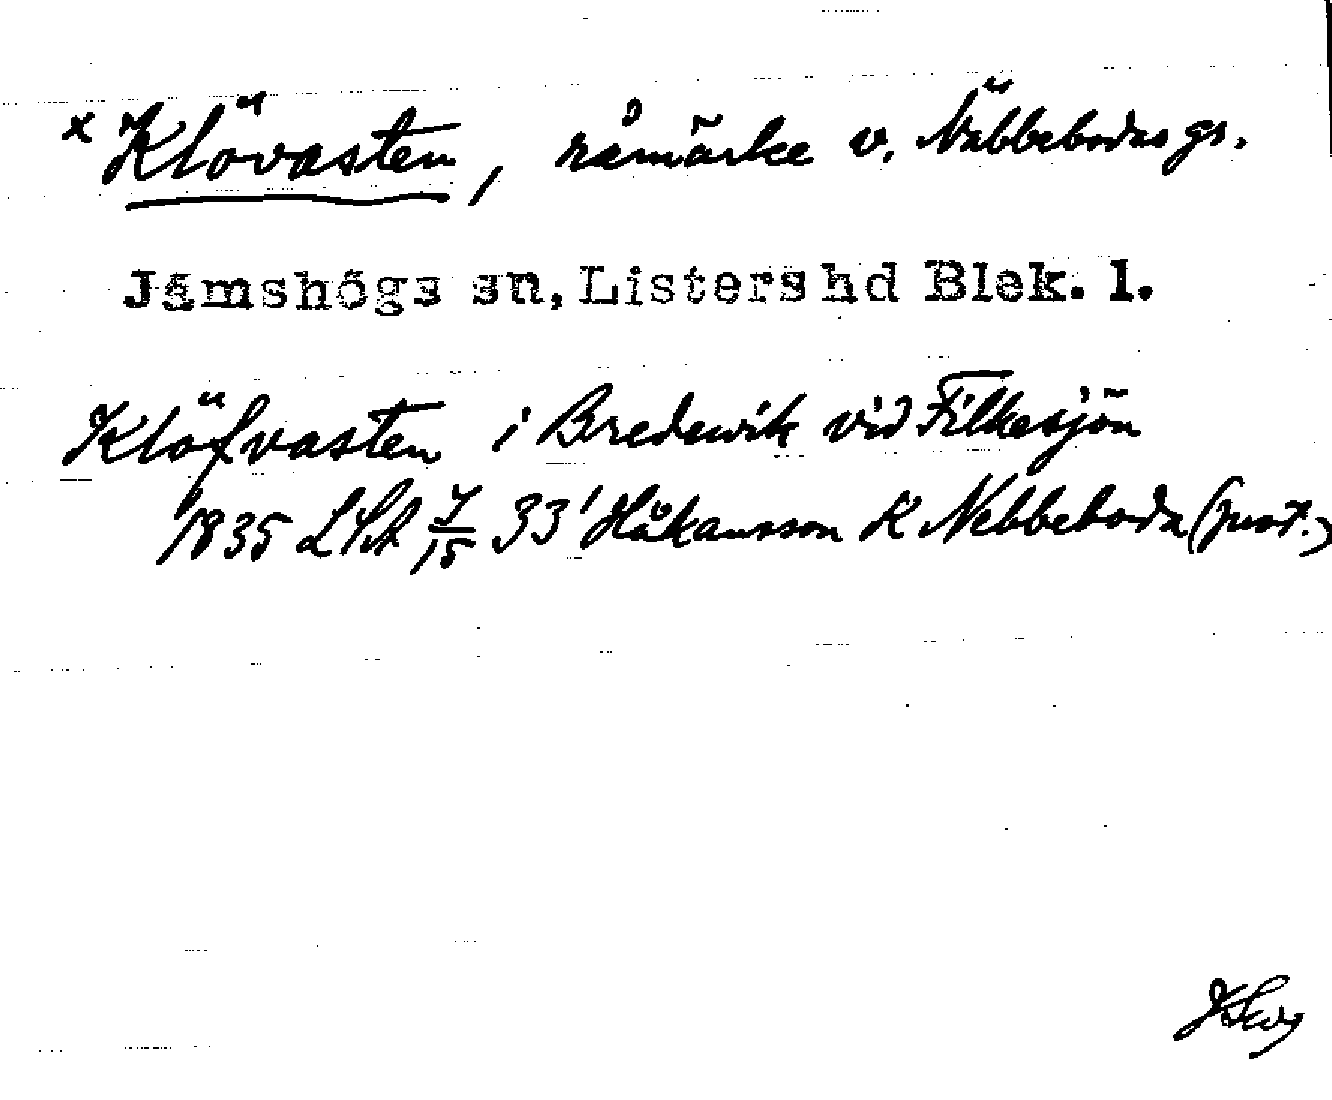 x Klövasten, råmärke v. Näbbebodas gs.
Jämshögs sn, Listers hd Blek. l.
Klöfvasten i Bredewik vid Filkesjön
1835 LSA 7/15 33' Håkansson K Nebbeboda (prot.)